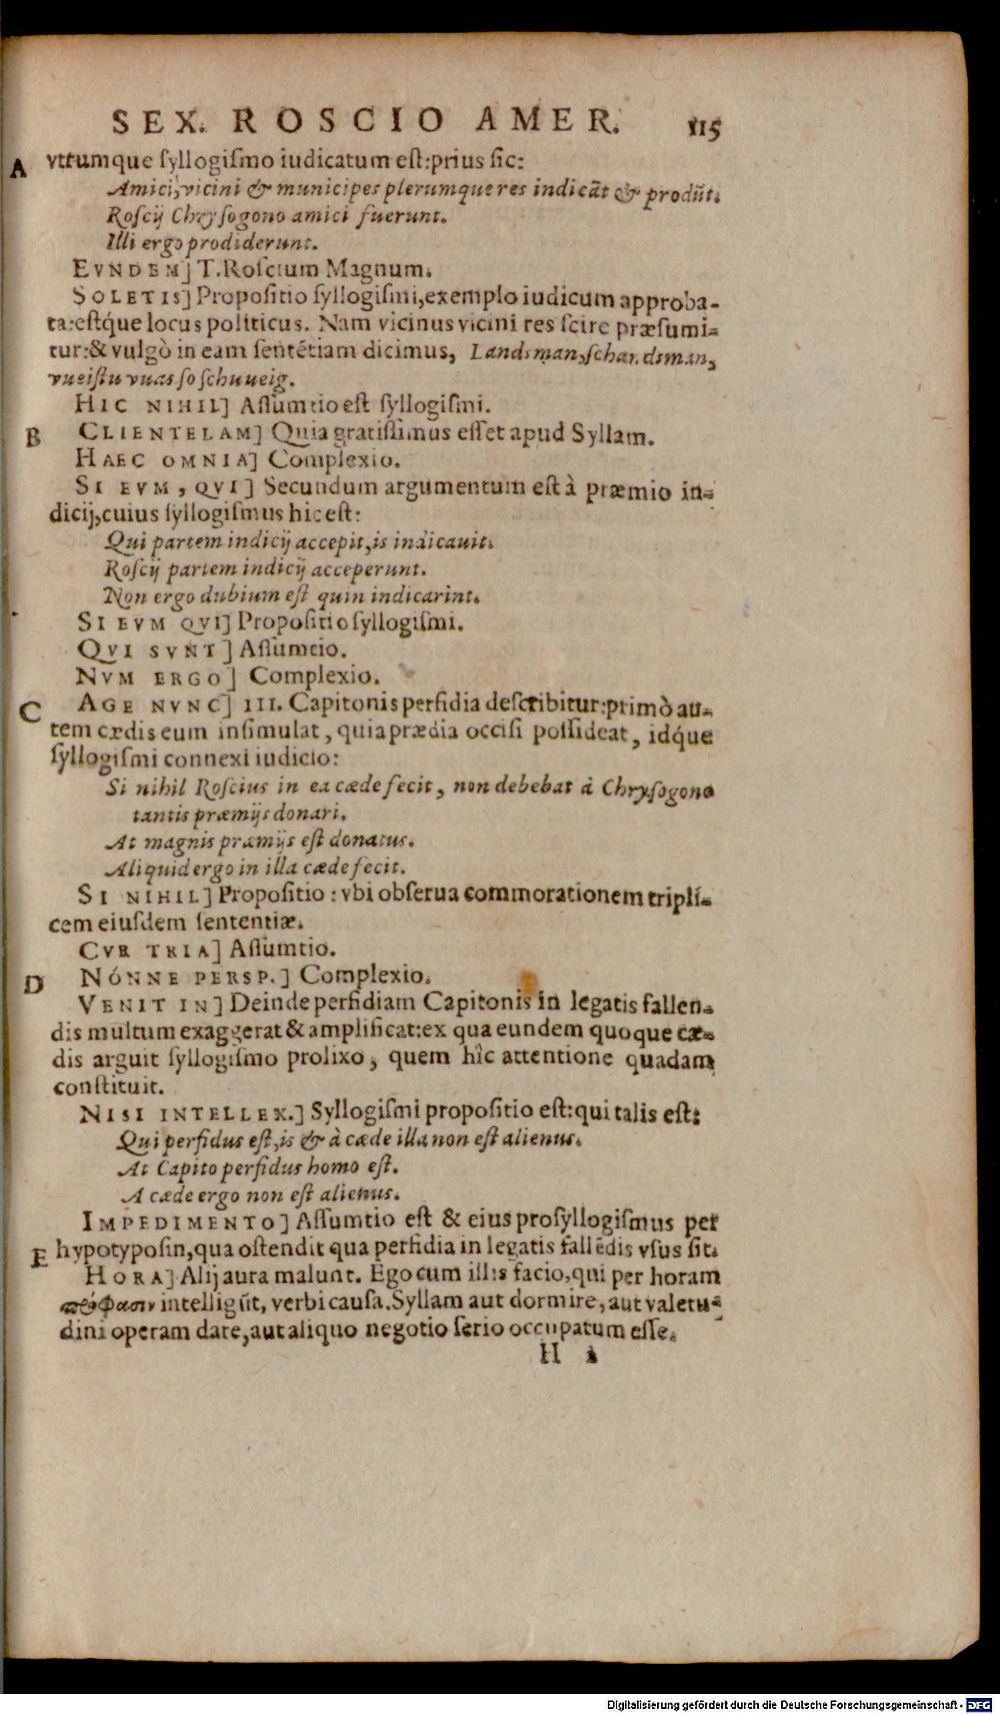 SEX. ROSCIO AMER. 115
A vtrumque syllogismo iudicatum est:prius sic:
Amici, vicini & municipes plerumque res indicãt & produ͂t.
Roscij Chrysogono amici fuerunt.
Illi ergo prodiderunt.
EVNDEM] T.Roscium Magnum.
SOLETIS] Propositio syllogismi,exemplo iudicum approba-
ta:estq́ue locus politicus. Nam vicinus vicini res scire præsumi-
tur:& vulgò in eam sente͂tiam dicimus, Landsman,schandsman,
vueistu vuas so schuueig.
HIC NIHIL] Assumtio est syllogismi.
B CLIENTELAM] Quia gratissimus esset apud Syllam.
HAEC OMNIA] Complexio.
SI EVM, QVI] Secundum argumentum est à præmio in-
dicij,cuius syllogismus hic est:
Qui partem indicij accepit,is indicauit.
Roscij partem indicij acceperunt.
Non ergo dubium est quin indicarint.
SI EVM QVI] Propositio syllogismi.
QVI SVNT] Assumtio.
NVM ERGO] Complexio.
C AGE NVNC] III. Capitonis perfidia describitur:primò au-
tem cædis eum insimulat, quia prædia occisi possideat, idq́ue
syllogismi connexi iudicio:
Si nihil Roscius in ea cæde fecit, non debebat à Chrysogono
tantis præmijs donari.
At magnis præmijs est donatus.
Aliquid ergo in illa cæde fecit.
SI NIHIL] Propositio: vbi obserua commorationem tripli-
cem eiusdem sententiæ.
CVR TRIA] Assumtio.
D NÓNNE PERSP.] Complexio.
VENIT IN] Deinde perfidiam Capitonis in legatis fallen-
dis multum exaggerat & amplificat:ex qua eundem quoque cæ-
dis arguit syllogismo prolixo, quem hîc attentione quadam
constituit.
NISI INTELLEX.] Syllogismi propositio est:qui talis est:
Qui perfidus est,is & à cæde illa non est alienus.
At Capito perfidus homo est.
A cæde ergo non est alienus.
IMPEDIMENTO] Assumtio est & eius prosyllogismus per
E hypotyposin,qua ostendit qua perfidia in legatis falle͂dis vsus sit.
HORA] Alij aura malunt. Ego cum illis facio,qui per horam
πρόφασιν intelligu͂t, verbi causa.Syllam aut dormire, aut valetu-
dini operam dare,aut aliquo negotio serio occupatum esse.
H
Digitalisierung gefördert durch die Deutsche Forschungsgemeinschaft - DFG